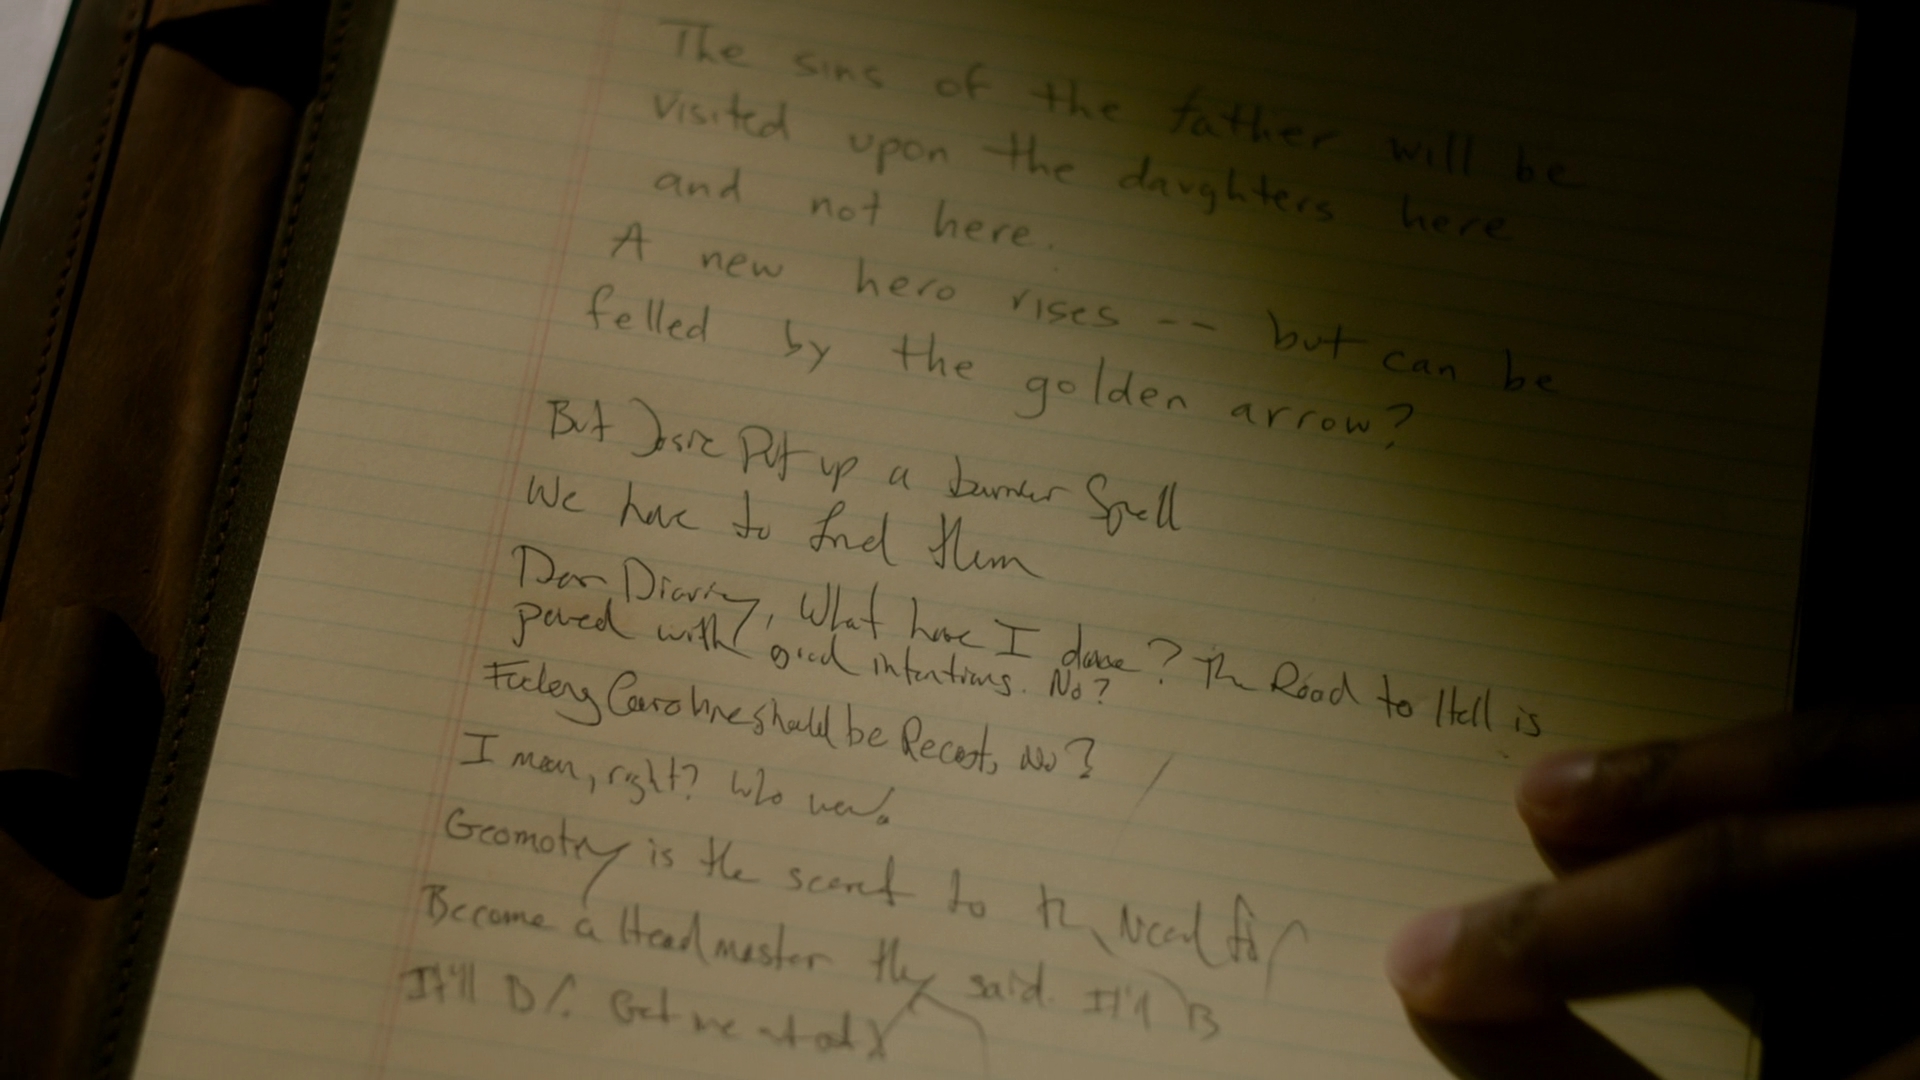 The sins of the father will be
visited upon the daughters here
and not here.
A new hero rises -- but can be
felled by the golden arrow?
But Josie Put up a barrier Spell
We have to find them
Dear Diary, What have I done? The Road to Hell is
paved with good intentions. No?
Caroline should be Recast, No?
I mean, right? Who
Geometry is the secret to the Need for
Become a Headmaster they said. It'll B
It'll Get me